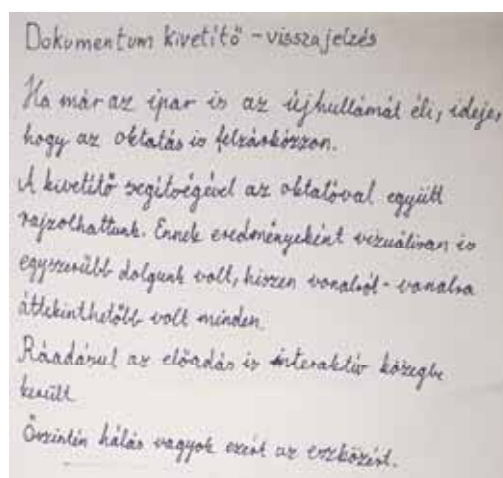 Dokumentum kivetítő - visszajelzés
Ha már az ipar is az újhullámát éli, ideje,
hogy az oktatás is felzárkózzon.
A kivetítő segítségével az oktatóval együtt
rajzolhattunk. Ennek eredményeként vizuálisan is
egyszerűbb dolgunk volt, hiszen vonalról-vonalra
áttekinthetőbb volt minden.
Ráadásul az előadás is interaktív közegbe
került.
Őszintén hálás vagyok ezért az eszközért.